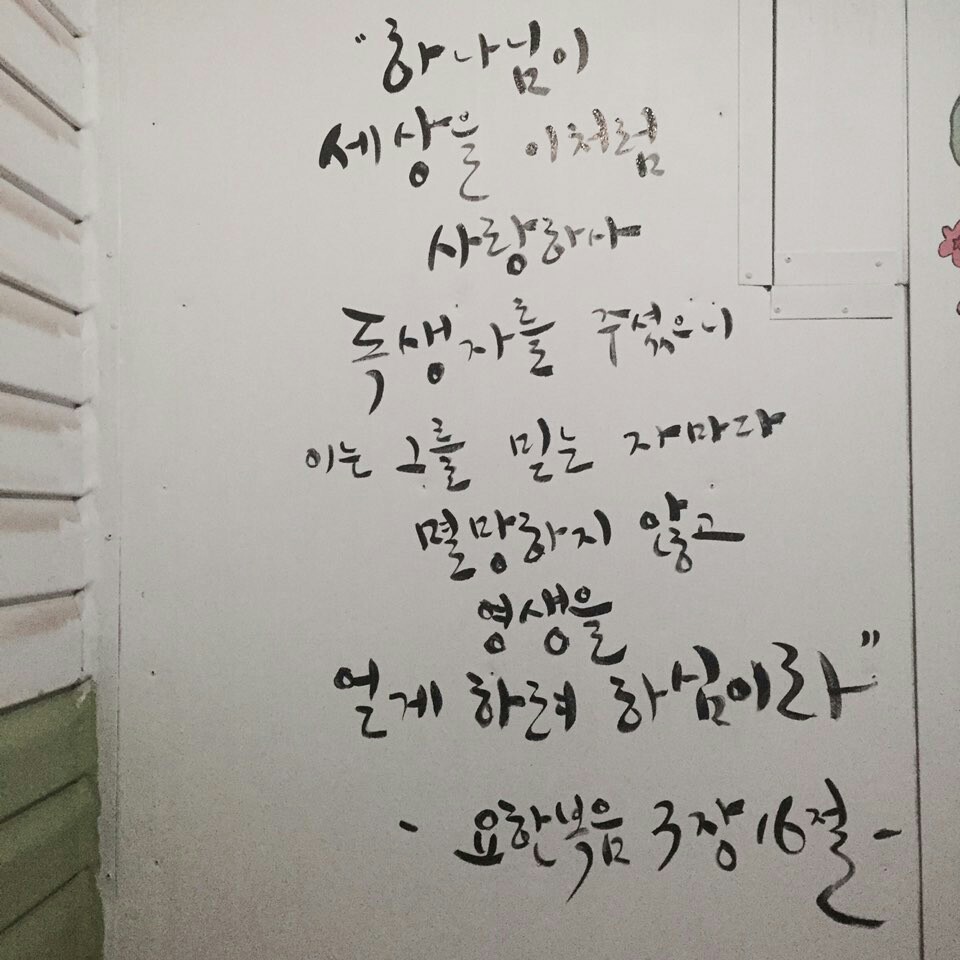 "하나님이
세상을 이처럼
사랑하사
독생자를 주셨으니
이는 그를 믿는 자마다
멸망하지 않고
영생을
얻게 하려 하심이라"
- 요한복음 3장 16절 -